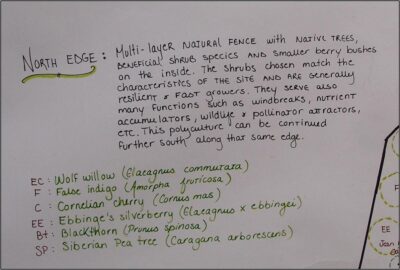 NORTH EDGE: Multi-layer NATURAL FENCE with NATIVE TREES,
BENEFICIAL SHRUB SPECIES AND SMALLER BERRY bushes
on the inside. The SHRUBS CHOSEN MATCH the
CHARACTERISTICS OF THE SITE AND ARE GENERALLY
RESILIENT & FAST growers. They SERVE ALSO
MANY FUNCTIONS SUCH AS WINDBREAKS, NUTRIENT
ACCUMULATORS, WILDLIFE & POLLINATOR ATTRACTORS,
ETC. This POLYCULTURE CAN BE CONTINUED
FURTHER SOUTH ALONG THAT SAME EDGE.
EC: Wolf willow (Elaeagnus commutata)
F: False Indigo (Amorpha fruticosa)
C: Cornelian cherry (Cornus mas)
EE: Ebbinge's silverberry (Elaeagnus x ebbingei)
Bt: Blackthorn (Prunus spinosa)
SP: Siberian Pea tree (Caragana arborescens)
EE